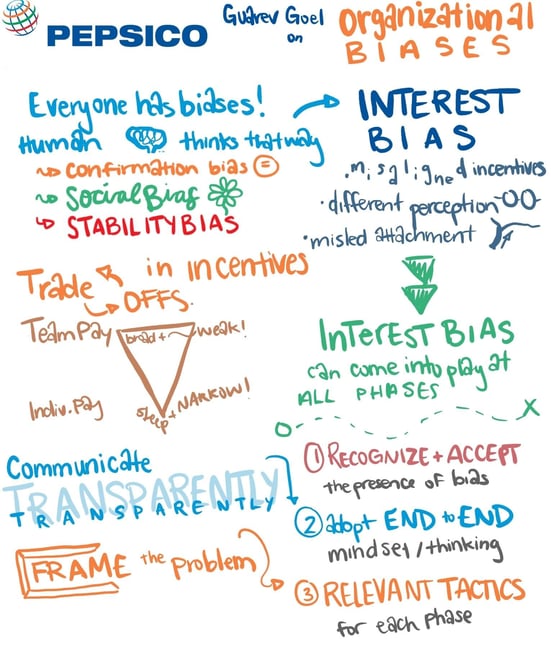 PEPSICO
Gudrev Goel
on
Organizational
BIASES
Everyone has biases!
Human thinks that way
confirmation bias
Social Bias
STABILITY BIAS
INTEREST
BIAS
misaligned incentives
different perception
misled attachment
Trade OFFS.
in incentives
Team Pay
broad +
weak!
Indiv. Pay
steep +
NARROW!
InTerEST BIAS
can come into play at
ALL PHASES
Communicate
TRANSPARENTLY
TRANSPARENTLY
FRAME the problem
① RECOGNIZE + ACCEPT
the presence of bias
② adopt END to END
mindset / thinking
③ RELEVANT TACTICS
for each phase